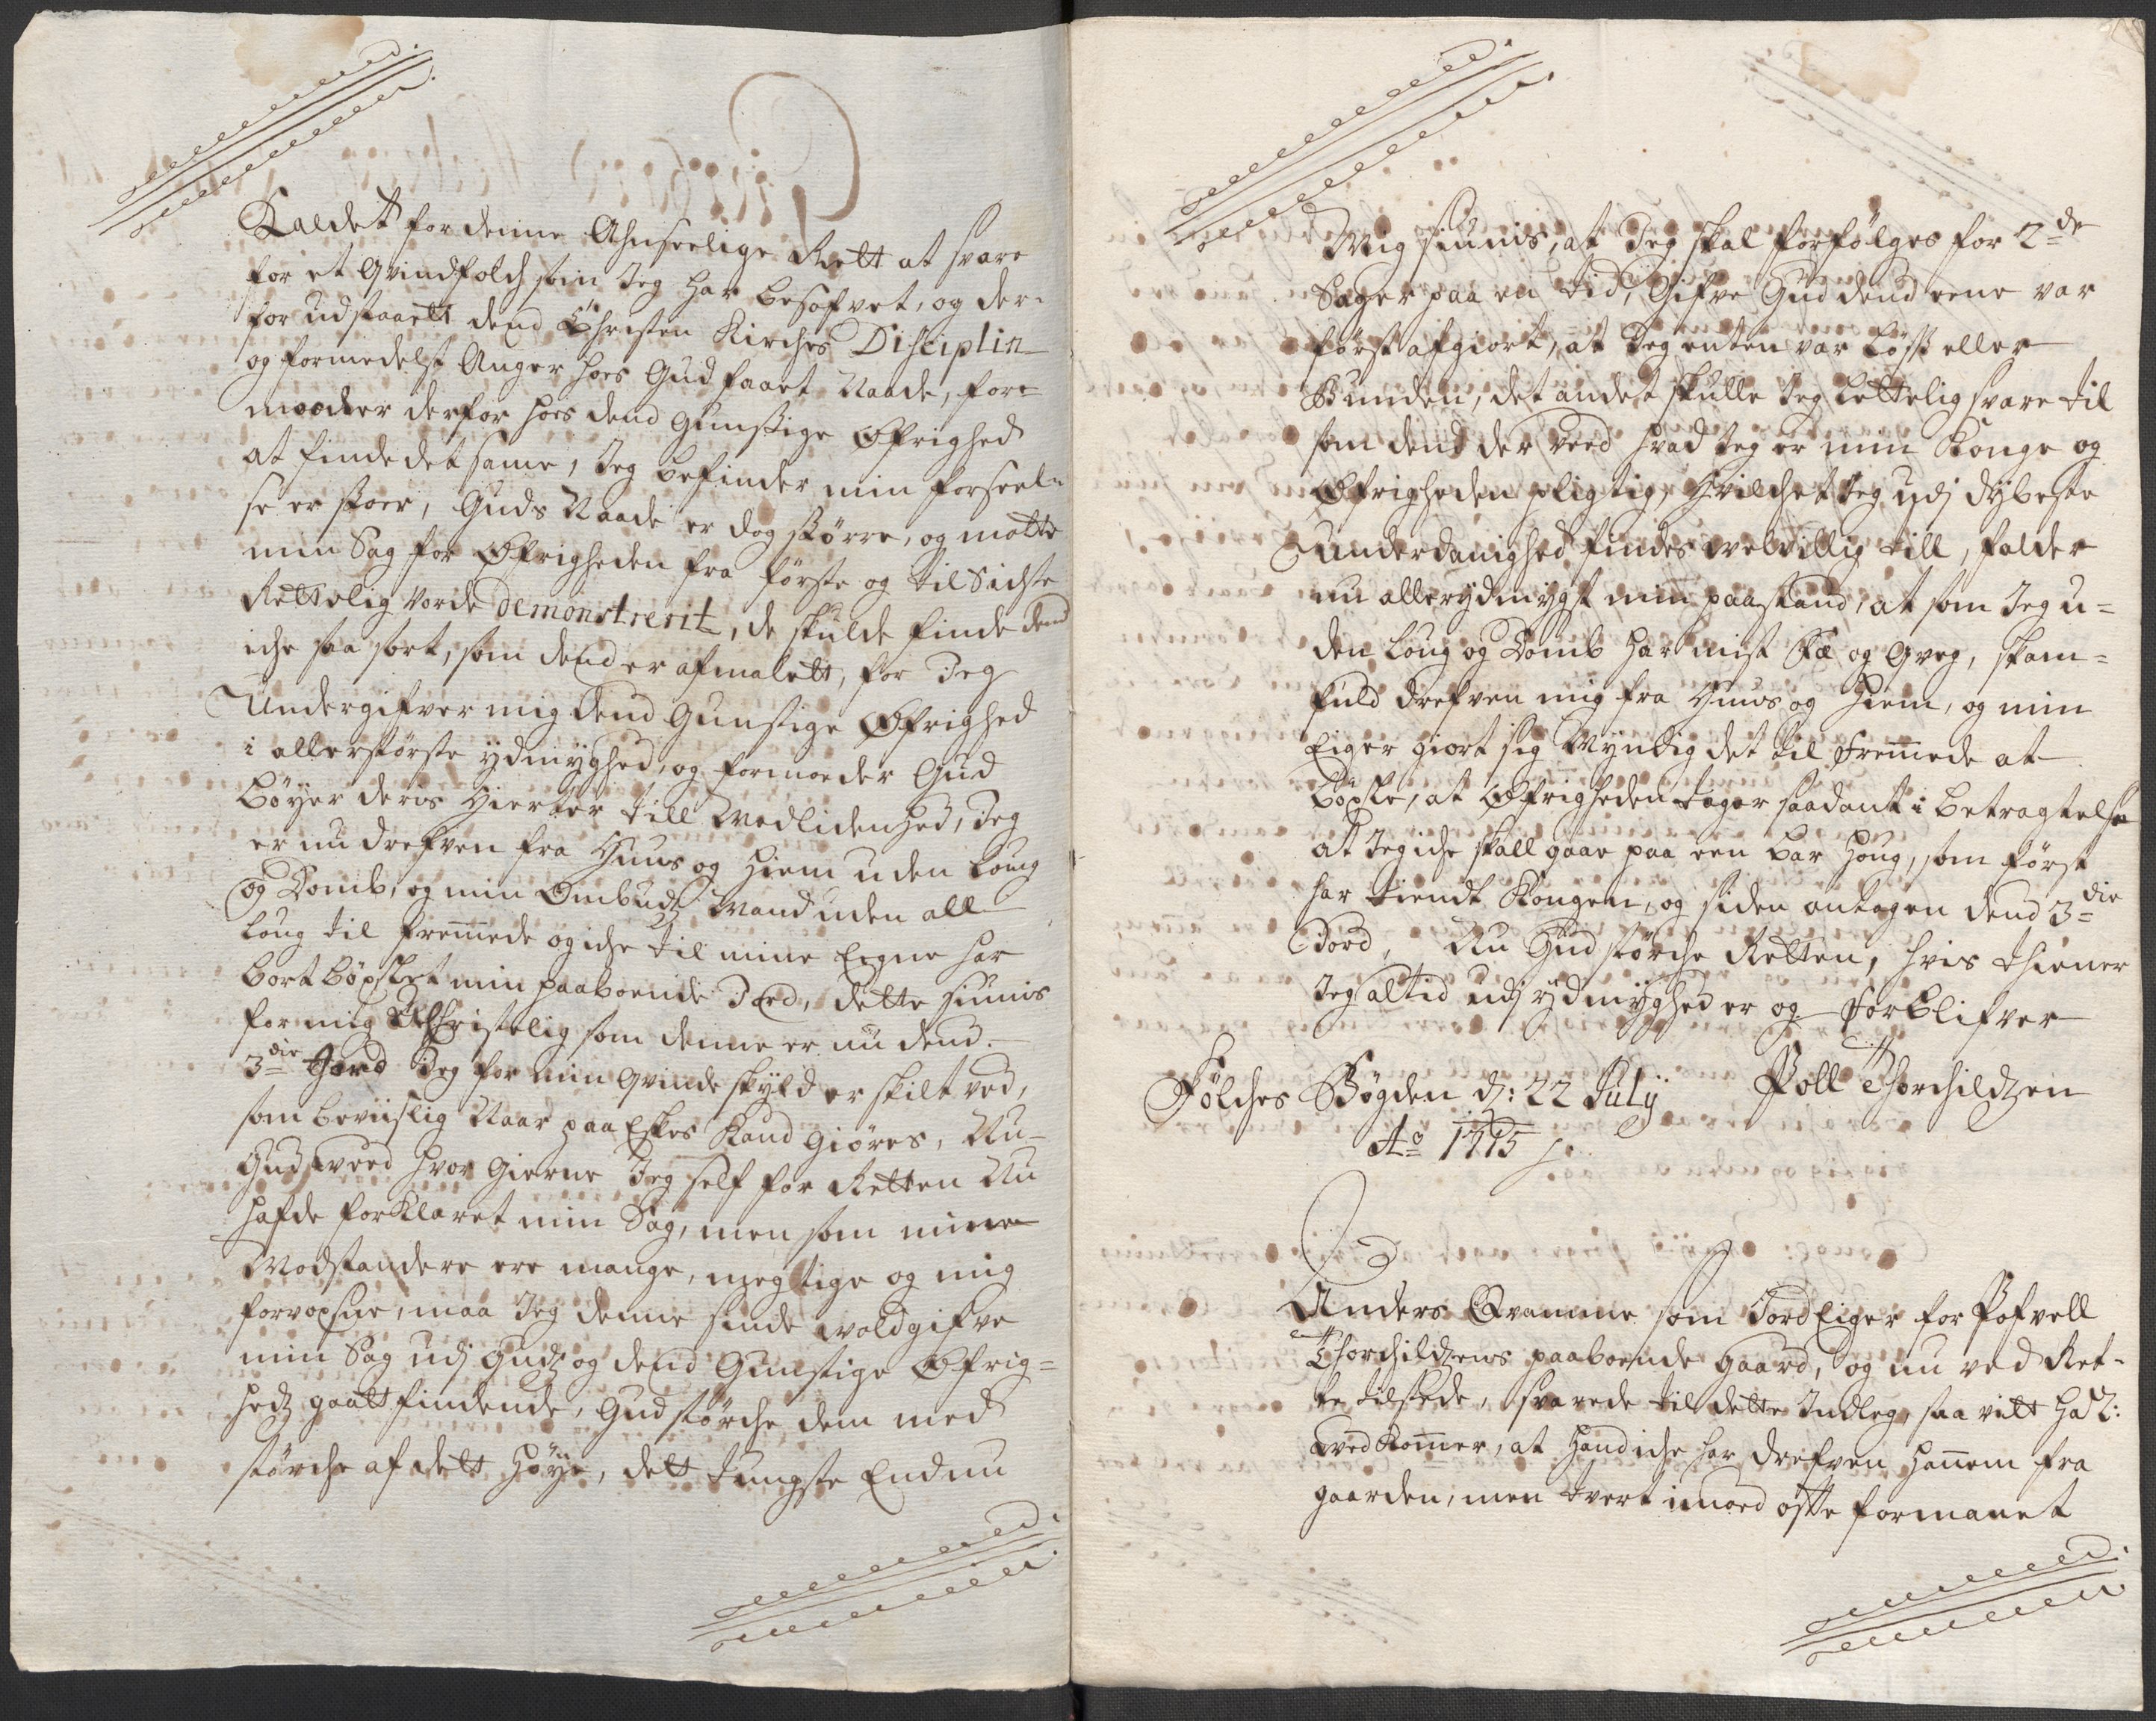 Kaldet for denne Ahnseelige Rett at svare
for et Qvindfolch som Jeg har besofvet, og der-
for udstaaett dend Christen Kirches Disciplin
og formedelst Anger hoes Gud faaet Naade, for-
mooder derfor hoes dend Gunstige Øfrighed
at finde det same, Jeg befinder min forseel-
se er stoer, Guds Naade er dog større, og motte
min Sag for Øfrigheden fra første og til sidste
Rettelig vorde demonstrerit, de skulde finde dend
iche saa sort, som dend er afmalett, for Jeg
Undergifver mig dend Gunstige Øfrighed
i allerstørste ydmyghed, og formoeder Gud
bøyer deris Hierter till Medlidenhed, Jeg
er nu drefven fra Huus og Hiem uden Loug
og Domb, og min Ombudz Mand uden all
Loug til fremmede og iche til mine Eegne har
bort bøxlet min paaboende Jord, dette siunis
for mig UChristelig som denne er nu dend
3die Jord Jeg for min Qvinde skyld er skilt ved,
som beviislig Naar paa Eskes Kand giøres, Nu
Gud veed hvor Gierne Jeg self for Retten Nu
hafde forklaret min Sag, men som mine
Modstandere ere mange, megtige og mig
forvoxsne, maa Jeg denne sinde voldgifve
min Sag udj Gudz og dend Gunstige Øfrig-
hedz gaatt findende, Gud störche dem med
störche af dett Høye, dett tungste Endnu
Mig siunis, at Jeg skal forfølges for 2de
Sager paa en tid, Gifve Gud dend eene var
først afgiort, at Jeg enten var Løss eller
Bunden, det andet skulle Jeg lettelig svare til
som dend der veed hvad Jeg er min Konge og
Øfrigheden pligtig, Hvilchet Jeg udj dybeste
underdanighed findes velvillig till, falder
nu allerydmygst min paastand, at som Jeg u-
den Loug og Domb har mist Fæ og Qveg, skam-
fuld drefven mig fra Huus og Hiem, og min
Eiger giort sig Myndig det til fremmede at
bøxle, at Øfrigheden tager saadant i betragtelse
at Jeg iche skall gaae paa een bar Houg, som først
har tient Kongen, og siden antagen dend 3die
Jord, Nu Gud störche Retten, hvis thiener
Jeg altid udj ydmyghed er og forblifver
Fölches Bøgden d: 22 Julij Poll Thorchildzen
Ao 1715
Anders Qvamme som Jord Eiger for Pofvell
Thorchildzens paaboende Gaard, og nu ved Ret-
te tilstede, svarede til dette Indleg, saa vitt ha2:
vedkommer, at Hand iche har drefven Hannem fra
gaarden, men tvert imoed ofte formanet